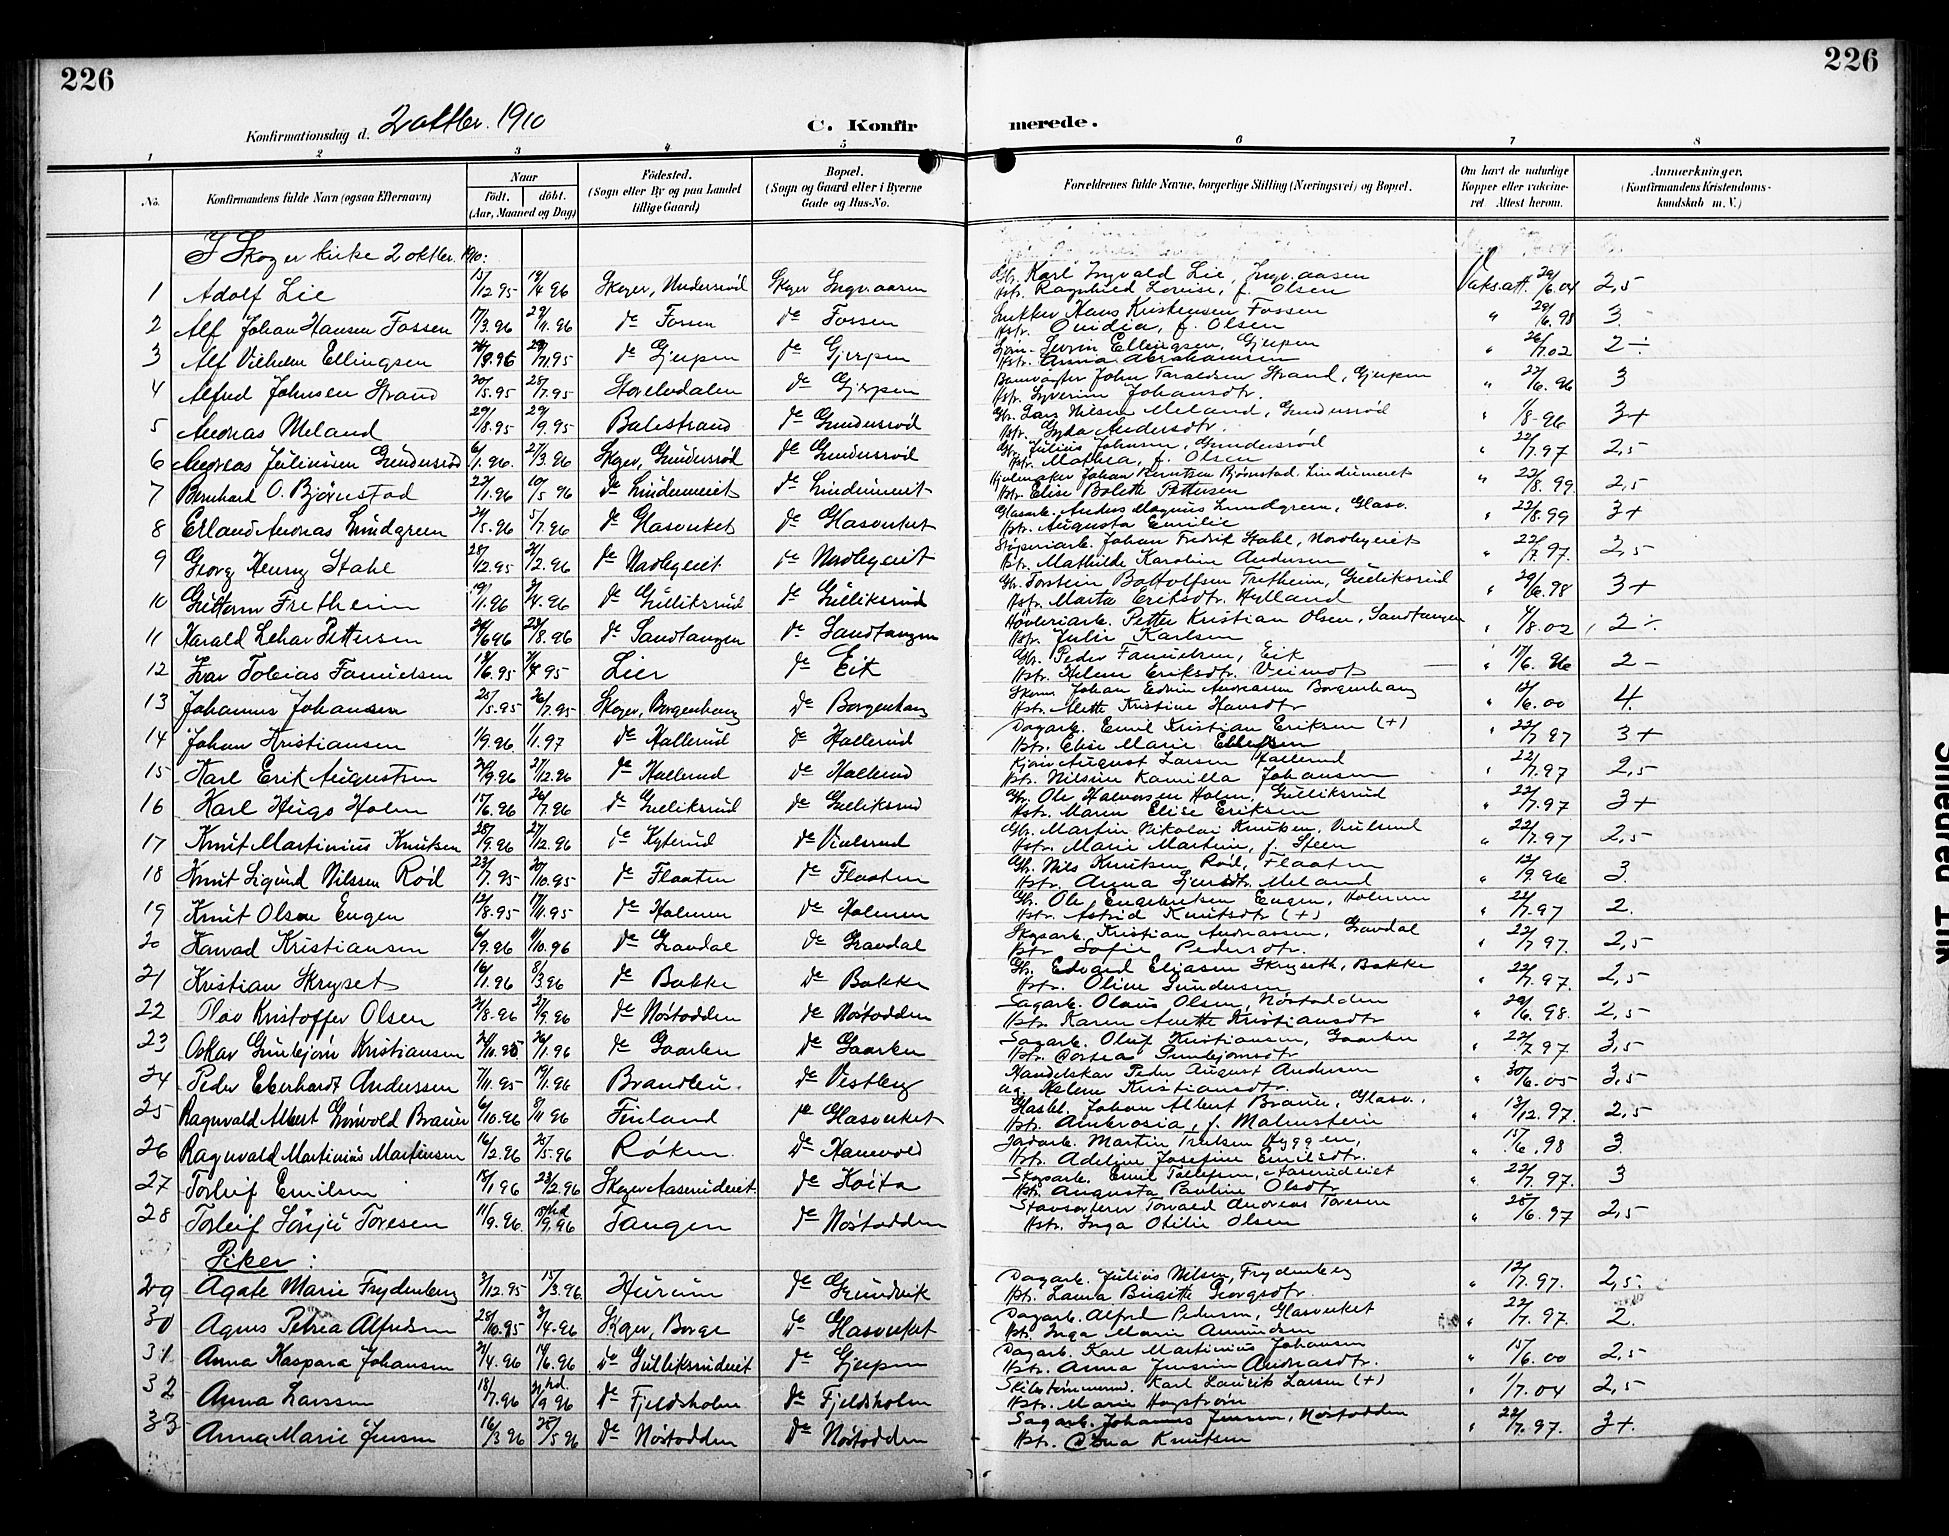 226
226
Konfirmationsdag d. 2 oktbr. 1910
C. Konfir merede.
1 2 3 4 5 6 7 8
No. Konfirmandens fulde Navn (ogsaa Efternavn) Naar født. døbt. (Aar, Maaned og Dag) Fødested. (Sogn eller By og paa Landet tillige Gaard) Bopæl. (Sogn og Gaard eller i Byerne Gade og Hus-No. Forældrenes fulde Navne, borgerlige Stilling (Næringsvei) og Bopæl. Om havt de naturlige Kopper eller vakcineret Attest herom. Anmerkninger. (Konfirmandens Kristendomskundskab m. V.)
I Skoger kirke 2 oktbr. 1910:
1 Adolf Lie 15/12 95 19/4 96 Skoger, Gundersrød Skoger Ingv.aasen Gbr. Karl Ingvald Lie, Ingv.aasen Hstr. Ragnhild Lovise, f. Olsen Vaks.att. 29/6.04 2,5
2 Alf Johan Hansen Fossen 17/3.96 29/11.96 de Fossen de Fossen Snekker Hans Kristensen Fossen Hstr. Ovidia, f. Olsen " 29/6.98 3
3 Alf Vilhelm Ellingsen de Gjerpen de Gjerpen Ellingsen, Gjerpen Hstr. Anna Abrahamsen " 26/7.02 2÷
4 Alfred Johnsen Strand 20/5.95 28/7.95 de Gjerpen Banevogter John Taraldsen Strand, Gjerpen Hstr. Johansdtr. " 22/6.96 3
5 Andreas Meland 29/8.95 29/9.95 Balestrand de Gundersrød Gbr. Lars Nilsen Meland, Gundersrød Hstr. Gyda Andersdtr. " 1/8-96 3+
6 Andreas Juliussen Gundersrød 6/1.96. 27/3.96 Skoger, Gundersrød de Gundersrød Gbr. Julius Johnsen, Gundersrød Hstr. Mathea, f. Olsen " 22/7.97 2,5
7 Bernhard O. Bjørnstad 22/1.96 10/5 96 de Lindumeiet de Lindumeiet Hjulmaker Johan Berntsen Bjørnstad, Lindumeiet Hstr. Elise Bolette Pettersen " 22/8.99. 2,5
8 Erland Andreas Lundgreen 24/5.96 5/7.96 de Glasverket de Glasverket Glasarb. Anders Magnus Lundgreen, Glasv. Hstr. Augusta Emilie " 22/8.99 3+
9 Georg Henry Stahl 28/12.95 2/2.96 de Nordbyeiet de Nordbyeiet Støperiarb. Johan Fredrik Stahl, Nordbyeiet Hstr. Mathilde Karoline Andersen " 22/7.97. 2,5
10 Guttorm Fretheim 19/1.96 3/4.96 de Gulliksrud de Gulliksrud Gbr. Torstein Bottolfsen Fretheim, Gulliksrud Hstr. Marta Eriksdtr. Hylland " 29/6.98 3+
11 Harald Pettersen 24/6 96 23/8.96 de Sandtangen de Sandtangen Høvleriarb. Petter Kristian Olsen, Sandtangen Hstr. Julie Karlsen " 4/8.02 2÷
12 Ivar Tobias Lier de Eik Gbr. Peder Eik Hstr. Helene Eriksdtr. " 17/6.96 2-
13 Johannes Johansen 25/5.95 26/7.95 Skoger, Borgenhaug de Borgenhaug Skom. Johan Edvin Andreassen Borgenhaug Hstr. Alette Kristine Hansdtr " 12/6.00 4.
14 Johan Kristiansen 1/9.96. 1/1.97 de Hallerud de Hallerud Dagarb. Emil Kristian Eriksen (+) Hstr. Elise Marie Ellefsen " 22/7.97 3+
15 Karl Erik Augustsen 21/9.96 27/12.96 de Hallerud de Hallerud August Larsen Hallerud Hstr. Nilsine Kamilla Johansen " 22/7.97 2,5
16 Karl Hugo Holm 15/6.96 26/7.96 de Gulliksrud de Gulliksrud Gbr. Ole Halvorsen Holm, Gulliksrud Hstr. Maren Elise Eriksen " 22/7.97 3+
17 Knut Martinius Knutsen 28/9.96 27/12.96 de Kyterud de Viulsrud Gbr. Martin Nikolai Knutsen, Viulsrud Hstr. Marie Martine, f. Steen " 22/7.97 2,5
18 Knut Sigurd Nilssen Rød 23/7.95 20/10.95 de Flaaten de Flaaten Gbr. Nils Knutsen Rød, Flaaten Hstr. Anna Meland " 12/9 96 3.
19 Knut Olsen Engen 12/8.95 17/11.95 de Holmen de Holmen Gbr. Ole Engebretsen Engen, Holmen Hstr. Astrid Knutsdtr (+) " 22/7.97 2.
20 Konrad Kristiansen 6/9.96 4/10.96 de Gravdal de Gravdal Skogsarb. Kristian Andreassen, Gravdal Hstr. Sofie Pedersdtr. " 22/7.97. 2,5
21 Kristian Skryset 16/1.96 8/3.96 de Bakke de Bakke Gbr. Edvard Eliasen Skryseth, Bakke Hstr. Oline Gundersen " 22/7.97. 2,5
22 Olav Kristoffer Olsen 21/8.96 27/9.96 de Nøstodden de Nøstodden Sagarb. Olaus Olsen, Nøstodden Hstr. Karen Anette Kristiansdtr " 29/6.98. 2,5
23 Oskar Gunbjørn Kristiansen 21/11.95 26/1.96 de Gaarken de Gaarken Sagarb. Oluf Kristiansen, Gaarken Hstr. Dortea Gunbjørnsdtr " 22/7.97 3,5
24 Peder Eberhardt Anderssen 7/11.95 19/1.96 Brandbu. de Vestberg Handelskar Peder August Andersen ug. Helene Kristiansdtr. " 30/6.05 3,5
25 Ragnvald Albert Grønvold Brauer 6/10.96 8/11 96 Finland de Glasverket Glasbl. Johan Albert Brauer, Glasv. Hstr. Ambrosia, f. Malmstein " 13/12.97. 2,5
26 Ragnvald Martinius Martinsen 16/2.96 25/5.96 Røken. de Hanevold Jordarb. Martin Trulsen Hyggen, Hstr. Adeline Josefine Emilsdtr. " 15/6.98 3.
27 Torleif Emilsen 15/1 96 23/2.96 Skoger Aaserudeiet. de Køita Skogsarb. Emil Tollefsen, Aaserudeiet Hstr. Augusta Pauline Olsdtr " 22/7.97. 3
28 Torleif Toresen 11/9.96. Tangen de Nøstodden Stavsorterer Torvald Andreas Toresen Hstr. Inga Otilie Olsen " 28/6.97 2,5
Piker:
29 Agate Marie Frydenberg 3/12.95 15/3.96 Hurum de Grundvik Dagarb. Julius Nilsen, Frydenberg Hstr. Laura Birgitte Georgsdtr. " 12/7.97. 2,5.
30 Agnes Petrea Alfredsen 28/10.95 3/4.96 Skoger, Borge de Glasverket Dagarb. Alfred Pedersen, Glasverket Hstr. Inga Marie Amundsen " 22/7.97. 2.
31 Anna Kaspara Johansen 21/4.96 14/6.96 de Gulliksrudeiet de Gjerpen Dagarb. Karl Martinius Johansen Hstr. Anna Jensine Andreasdtr. " 15/6.00 2,5
32 Anna Larssen 18/7.96 de Fjeldsholm de Fjeldsholm Karl Laurits Larsen (+) Hstr. Marie Hagstrøm " 1/7.04 2,5
33 Anna Marie Jensen 16/3 96 25/5 96 de Nøstodden de Nøstodden Sagarb. Johannes Jensen, Nøstodden Hstr. Knutsen " 22/7.97. 3+.